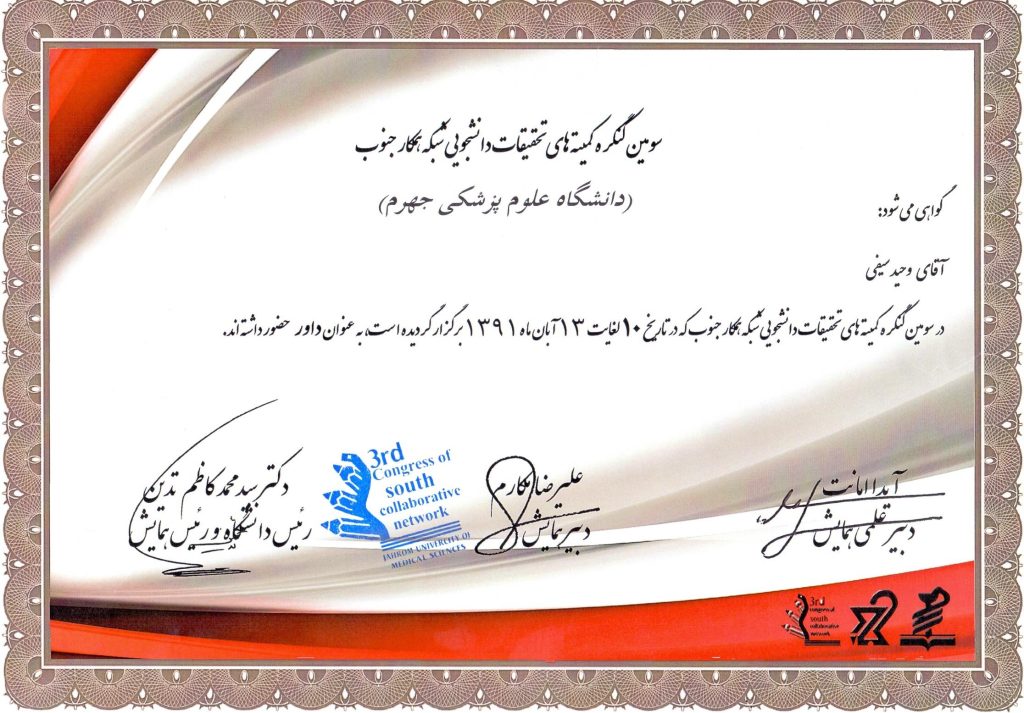 سومین کنگره کمیته های تحقیقات دانشجویی شبکه همکار جنوب
(دانشگاه علوم پزشکی جهرم)
گواهی می شود:
آقای وحید سیفی
در سومین کنگره کمیته های تحقیقات دانشجویی شبکه همکار جنوب که در تاریخ ۱۰ لغایت ۱۳ آبان ماه ۱۳۹۱ برگزار گردیده است، به عنوان داور حضور داشته اند.
آیدا امانت
دبیر علمی همایش
علیرضا مکارم
دبیر همایش
3rd
Congress of
south
collaborative
network
JAHROM UNIVERCITY OF
MEDICAL SCIENCES
دکتر سید محمد کاظم تدین
رئیس دانشگاه و رئیس همایش
3rd
congress of
south
collaborative
network